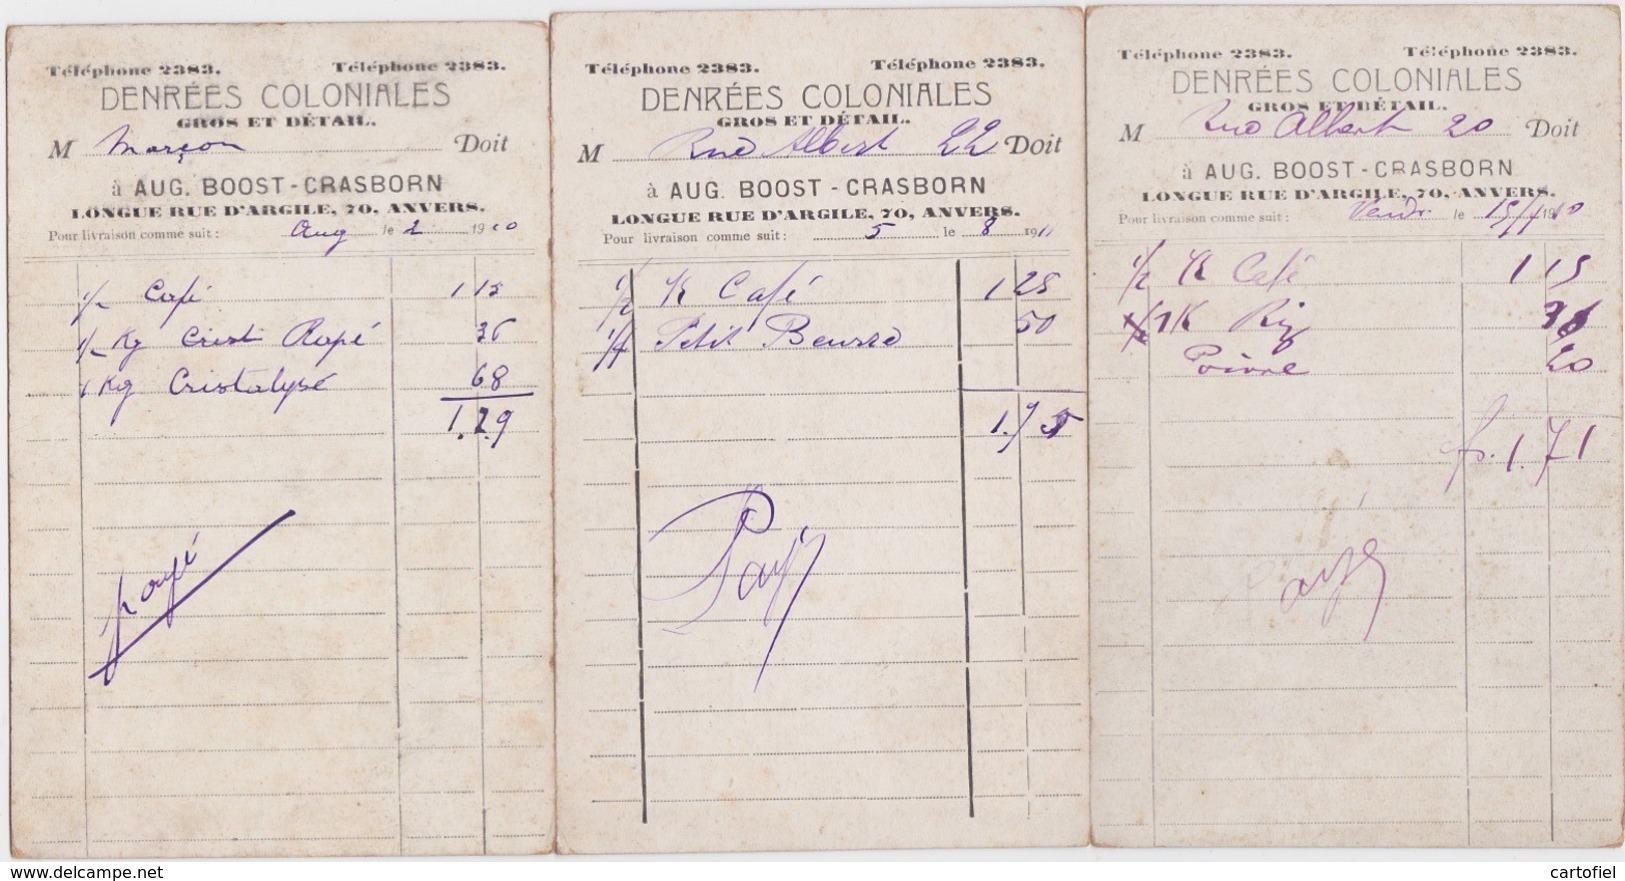 Téléphone 2383. Téléphone 2383.
DENRÉES COLONIALES
GROS ET DÉTAIL.
M Marçon Doit
à AUG. BOOST - CRASBORN
LONGUE RUE D'ARGILE, 70, ANVERS.
Pour livraison comme suit: Aug le 2 1910
1/2 Café 1 15
1/2 Kg Crist Rapé 36
1 Kg Cristalysé 68
payé
Téléphone 2383. Téléphone 2383.
DENRÉES COLONIALES
GROS ET DÉTAIL.
M Rue Albert 22 Doit
à AUG. BOOST - CRASBORN
LONGUE RUE D'ARGILE, 70, ANVERS.
Pour livraison comme suit: 5 le 8 1911
1/2 K Café 1 25
1/4 Petit Beurre 50
1.75
Payé
Téléphone 2383. Téléphone 2383.
DENRÉES COLONIALES
GROS ET DÉTAIL.
M Rue Albert 20 Doit
à AUG. BOOST - CRASBORN
LONGUE RUE D'ARGILE, 70, ANVERS.
Pour livraison comme suit: Vendr. le 1910
1/2 K Café 1 15
1K Riz 36
Poivre 20
fr. 1.71
Payé
www.delcampe.net cartofiel